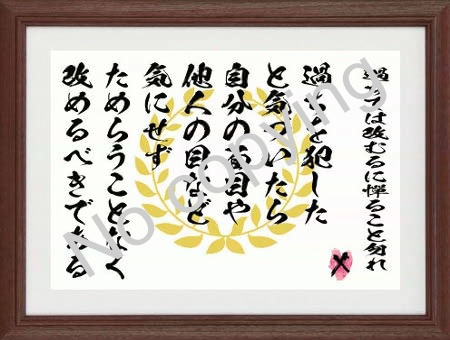 過ちは改むるに憚ること勿れ
過ちを犯した
と気づいたら
自分の面目や
他人の目など
気にせず
ためらうことなく
改めるべきである
No copying